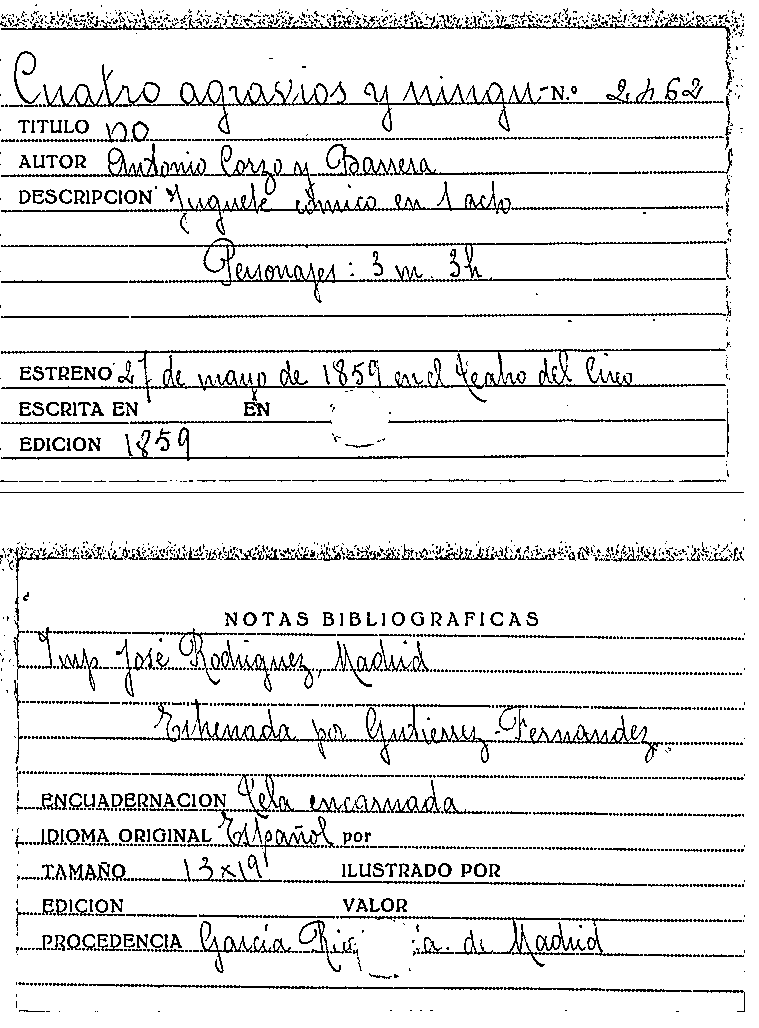 Cuatro agravios y ningu- N.º 2.462
TITULO no
AUTOR Antonio Corzo y Barrera
DESCRIPCION Juguete cómico en 1 acto
Personajes: 3 m. 3h
ESTRENO 27 de mayo de 1859 en el teatro del Circo
ESCRITA EN EN
EDICION 1859
NOTAS BIBLIOGRAFICAS
Imp José Rodríguez, Madrid
Estrenada por Gutiérrez-Fernandez.
ENCUADERNACION Tela encarnada
IDIOMA ORIGINAL Español por
TAMAÑO 13x19 ILUSTRADO POR
EDICION VALOR
PROCEDENCIA García de Madrid